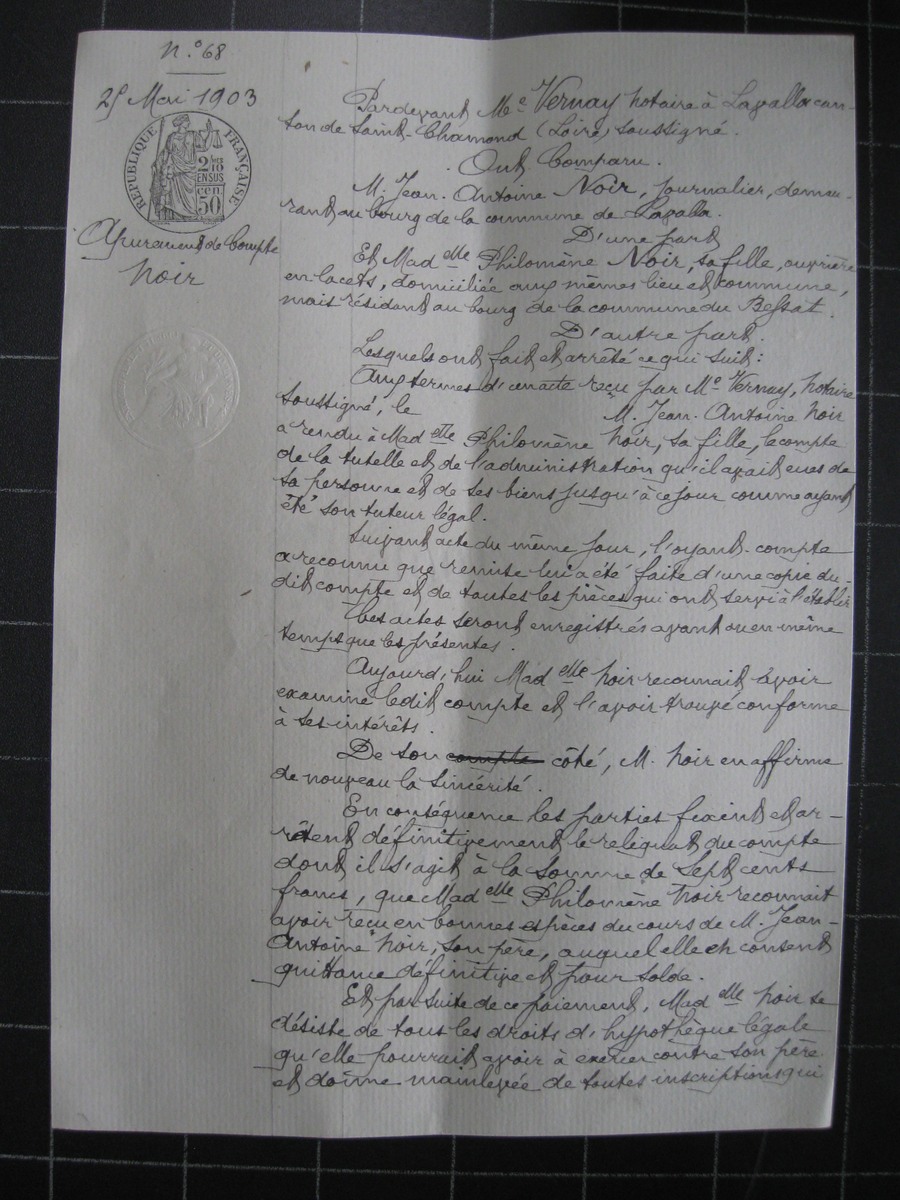 n.° 68
25 Mai 1903
RÉPUBLIQUE FRANÇAISE
2/10
EN SUS
50 cen.
Apurement de Compte
Noir
Pardevant Me Vernay notaire à Lavalla can-
ton de Saint-Chamond (Loire) soussigné.
Ont Comparu.
M. Jean-Antoine Noir, journalier, demeu-
rant au bourg de la commune de Lavalla.
D'une part
Et Madelle Philomène Noir, sa fille, ouvrière
en lacets, domiciliée aux mêmes lieu et commune,
mais résidant au bourg de la commune du Bessat.
D'autre part.
Lesquels ont fait et arrêté ce qui suit:
Aux termes d'un acte reçu par Me Vernay, notaire
soussigné, le M. Jean-Antoine Noir
a rendu à Madelle Philomène Noir, sa fille, le compte
de la tutelle et de l'administration qu'il avait eues de
sa personne et de ses biens jusqu'à ce jour comme ayant
été son tuteur légal.
Suivant acte du même jour, l'oyant-compte
a reconnu que remise lui a été faite d'une copie du-
dit compte et de toutes les pièces qui ont servi à l'établir
Ces actes seront enregistrés avant ou en même
temps que les présentes.
Aujourd'hui Madelle Noir reconnait avoir
examiné ledit compte et l'avoir trouvé conforme
à ses intérêts.
De son compte côté, M. Noir en affirme
de nouveau la sincérité.
En conséquence les parties fixent et ar-
rêtent définitivement le reliquat du compte
dont il s'agit à la somme de Sept cents
francs, que Madelle Philomène Noir reconnait
avoir reçu en bonnes espèces du cours de M. Jean-
Antoine Noir, son père, auquel elle en consent
quittance définitive et pour solde.
Et par suite de ce paiement, Madelle Noir se
désiste de tous les droits d'hypothèque légale
qu'elle pourrait avoir à exercer contre son père
et donne mainlevée de toutes inscriptions qui